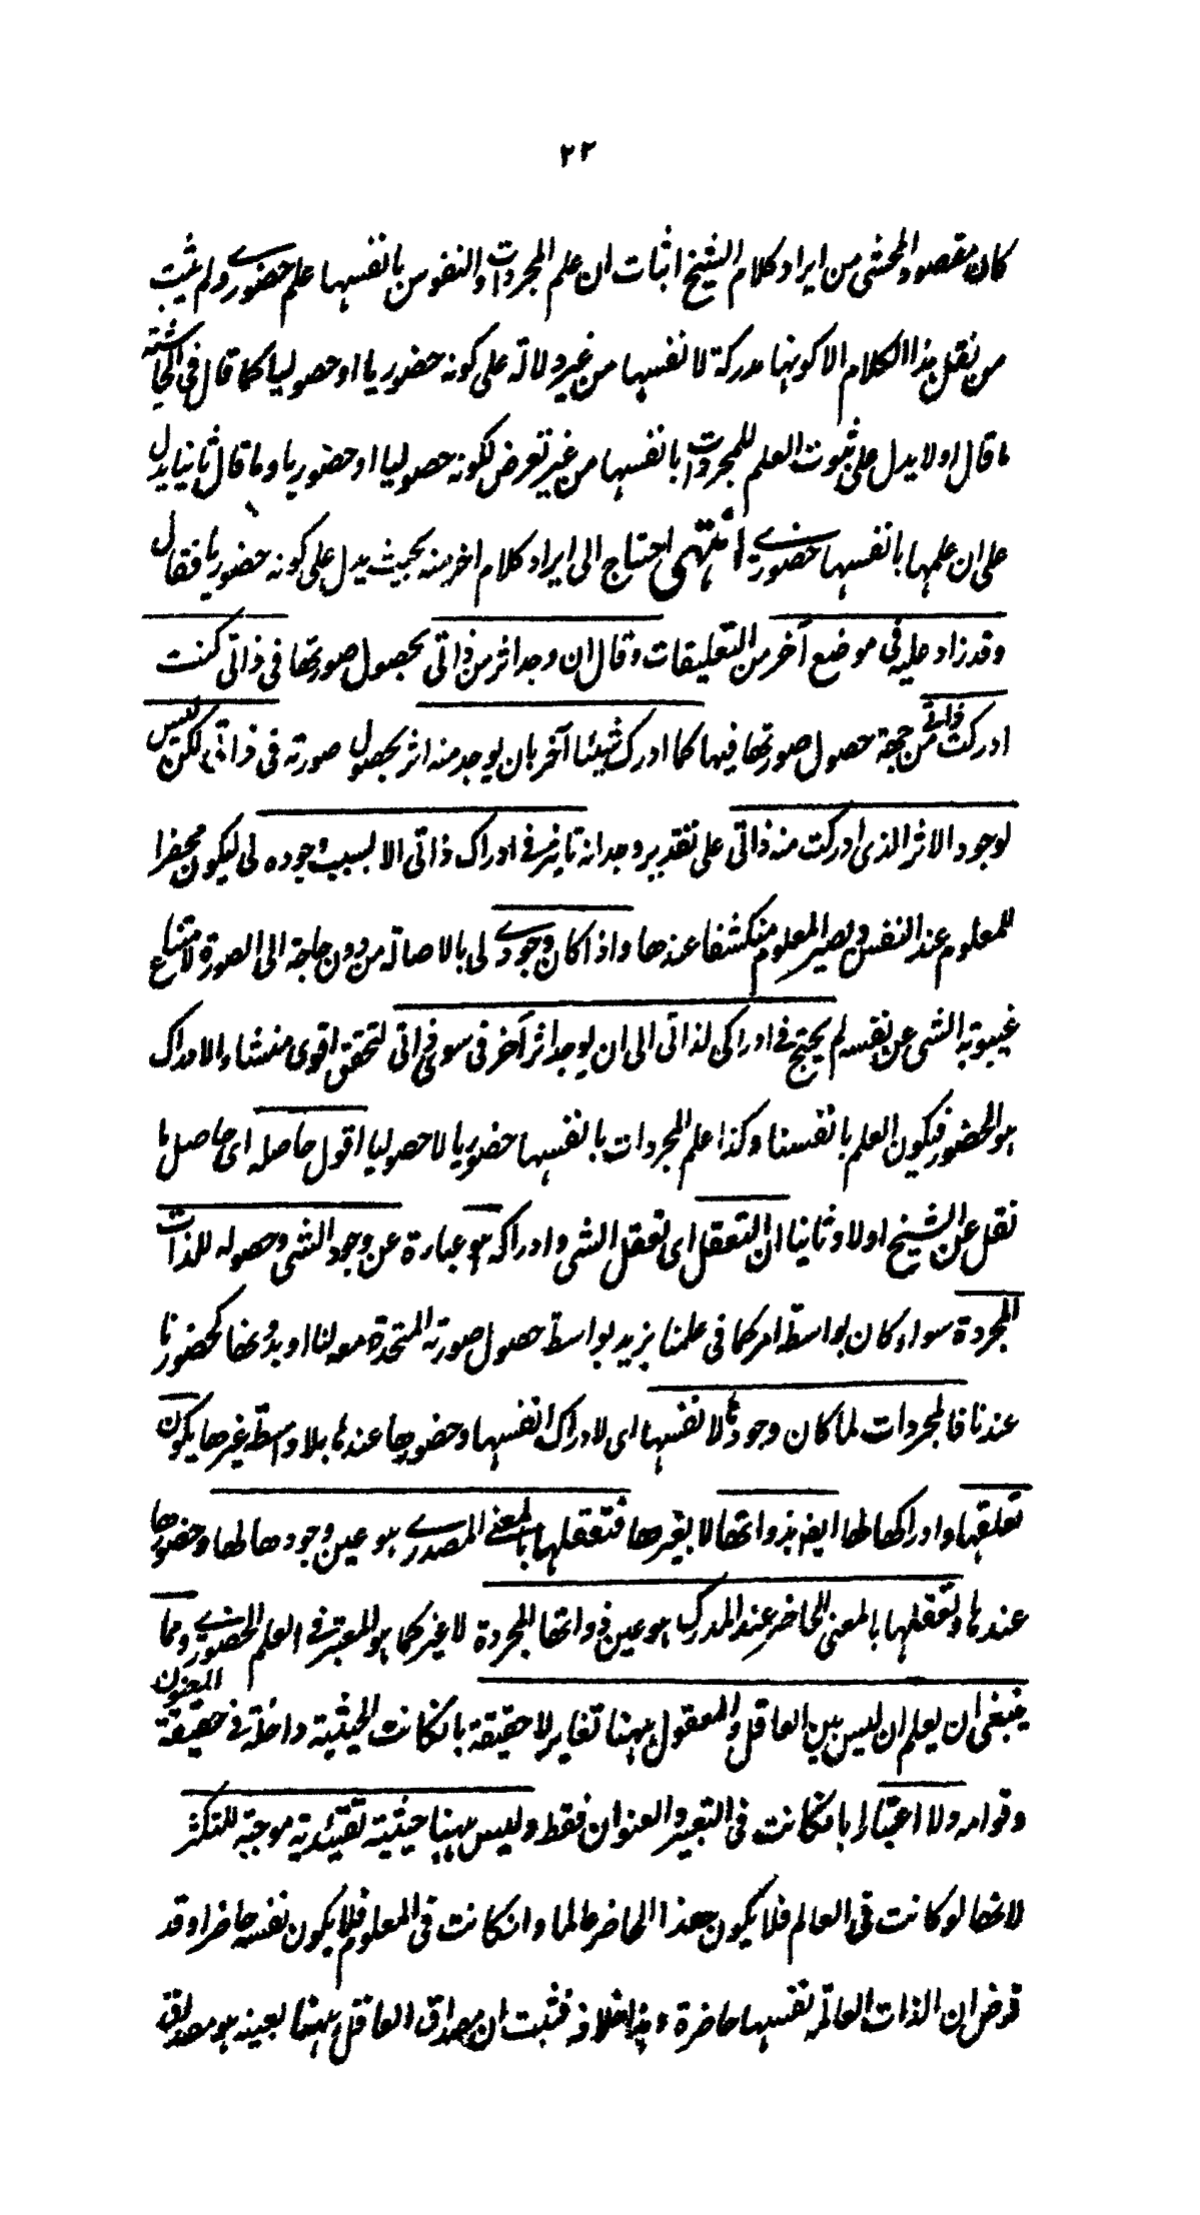 ٢٢
كان مقصود المحشى من ايراد كلام الشيخ اثبات ان علم المجردات والنفوس بانفسها علم حضورى ولم يثبت
من نقل هذا الكلام الا كونها مدركة لانفسها من غير دلالة على كونه حضوريا او حصوليا كما قال فى الحاشية
ما قال اولا يدل على ثبوت العلم للمجردات بانفسها من غير تعرض لكونه حصوليا او حضوريا وما قال ثانيا يدل
على ان علمها بانفسها حضورى انتهى احتاج الى ايراد كلام اخر منه بحيث يدل على كونه حضوريا فقال
وقد زاد عليه فى موضع آخر من التعليقات وقال ان وجد اثر من ذاتى بحصول صورتها فى ذاتى كنت
ادركت ذاتى من جهة حصول صورتها فيها كما ادرك شيئا آخر بان يوجد منه اثر بحصول صورته فى ذاتى لكن ليس
لوجود الاثر الذى ادركت منه ذاتى على تقدير وجدانه تاثير فى ادراك ذاتى الا بسبب وجوده لى ليكون محضرا
للمعلوم عند النفس ويصير المعلوم منكشفا عندها واذا كان وجودى لى بالاصالة من دون حاجة الى الصورة لامتناع
غيبوبة الشى عن نفسه لم يحتج فى ادراكى لذاتى الى ان يوجد اثر آخر فى سوى ذاتى لتحقق اقوى منشاء الادراك
هو الحضور فيكون العلم بانفسنا وكذا علم المجردات بانفسها حضوريا لا حصوليا اقول حاصله اى حاصل ما
نقل عن الشيخ اولا وثانيا ان التعقل اى تعقل الشى وادراكه هو عبارة عن وجود الشى وحصوله للذات
المجردة سواء كان بواسطة امر كما فى علمنا بزيد بواسطة حصول صورته المتحدة معه لنا او بدونها كحضورنا
عندنا فالمجردات لما كان وجودها لانفسها اى لادراك انفسها وحضورها عندها بلا واسطة غيرها يكون
تعلقها وادراكها لها ايضا بذواتها لا بغيرها فتعقلها بالمعنى المصدرى هو عين وجودها لها وحضورها
عندها وتعقلها بالمعنى الحاضر عند المدرك هو عين ذواتها المجردة لا غير كما هو المعتبر فى العلم الحضورى ومما
ينبغى ان يعلم ان ليس بين العاقل والمعقول ههنا تغاير لا حقيقة بان كانت الحيثية داخلة فى حقيقة المعنون
وقوامه ولا اعتبارا بان كانت فى التعبير والعنوان فقط وليس ههنا حيثية تقييدية موجبة للتكثر
لانها لو كانت فى العالم فلا يكون هذا الحاضر عالما وان كانت فى المعلوم فلا يكون نفسه حاضرا وقد
فرض ان الذات العالمة نفسها حاضرة هذا خلاف فثبت ان مصداق العاقل ههنا بعينه هو مصداق